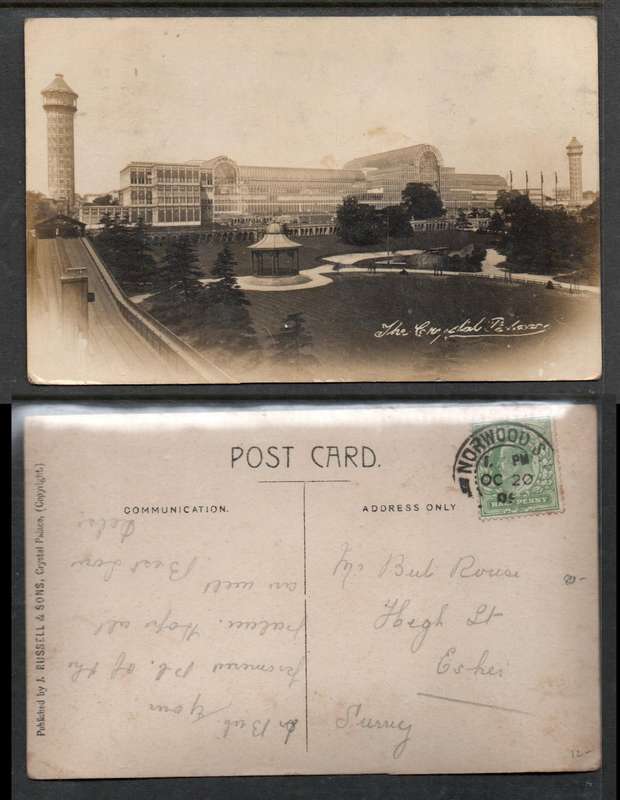 The Crystal Palace
POST CARD.
COMMUNICATION.
ADDRESS ONLY
Published by J. RUSSELL & SONS, Crystal Palace, (Copyright.)
NORWOOD S
PM
OC 20
HALF PENNY
Bub Rouse
High St
Esher
Surrey
Dr Bub
Your
promised P.c. of the
palace. Hope all
are well
Best Love
12-